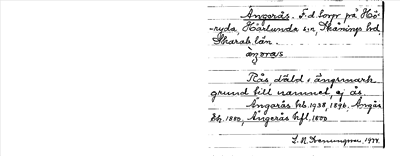 Ängerås. F.d. torp på Hö-
ryda, Härlunda sn, Skånings hd,
Skarab. län.
äŋərås
Rås, däld i ängsmark
grund till namnet, ej ås.
Ängarås hb. 1938, 1896, Ängås
hfl. 1880, Ängerås hfl. 1800
1974.